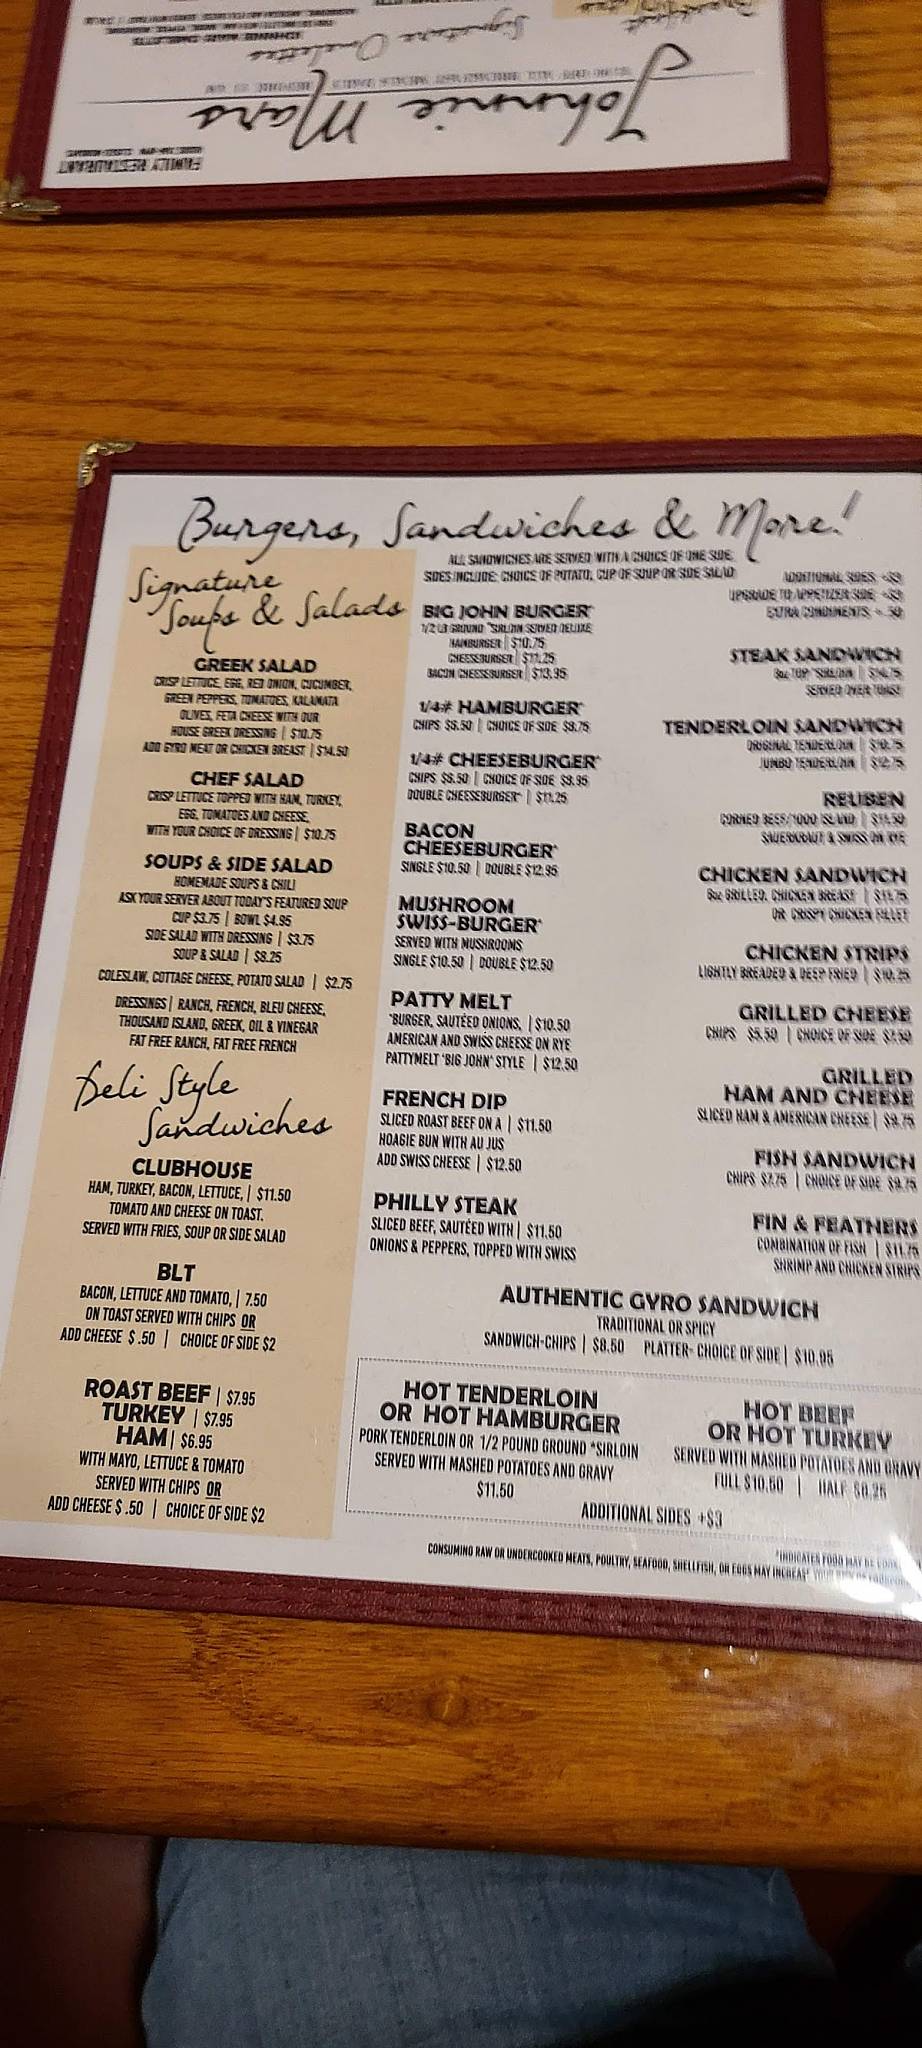 FAMILY RESTAURANT
Johnnie Mars
Signature Omelettes
Breakfast
Burgers, Sandwiches & More!
ALL SANDWICHES ARE SERVED WITH A CHOICE OF ONE SIDE.
SIDES INCLUDE: CHOICE OF POTATO, CUP OF SOUP OR SIDE SALAD
Signature
Soups & Salads
GREEK SALAD
CRISP LETTUCE, EGG, RED ONION, CUCUMBER,
GREEN PEPPERS, TOMATOES, KALAMATA
OLIVES, FETA CHEESE WITH OUR
HOUSE GREEK DRESSING | $10.75
ADD GYRO MEAT OR CHICKEN BREAST | $14.50
CHEF SALAD
CRISP LETTUCE TOPPED WITH HAM, TURKEY,
EGG, TOMATOES AND CHEESE,
WITH YOUR CHOICE OF DRESSING | $10.75
SOUPS & SIDE SALAD
HOMEMADE SOUPS & CHILI
ASK YOUR SERVER ABOUT TODAY'S FEATURED SOUP
CUP $3.75 | BOWL $4.95
SIDE SALAD WITH DRESSING | $3.75
SOUP & SALAD | $8.25
COLESLAW, COTTAGE CHEESE, POTATO SALAD | $2.75
DRESSINGS | RANCH, FRENCH, BLEU CHEESE,
THOUSAND ISLAND, GREEK, OIL & VINEGAR
FAT FREE RANCH, FAT FREE FRENCH
Deli Style
Sandwiches
CLUBHOUSE
HAM, TURKEY, BACON, LETTUCE, | $11.50
TOMATO AND CHEESE ON TOAST.
SERVED WITH FRIES, SOUP OR SIDE SALAD
BLT
BACON, LETTUCE AND TOMATO, | 7.50
ON TOAST SERVED WITH CHIPS OR
ADD CHEESE $ .50 | CHOICE OF SIDE $2
ROAST BEEF | $7.95
TURKEY | $7.95
HAM | $6.95
WITH MAYO, LETTUCE & TOMATO
SERVED WITH CHIPS OR
ADD CHEESE $ .50 | CHOICE OF SIDE $2
BIG JOHN BURGER*
1/2 LB GROUND *SIRLOIN SERVED DELUXE
HAMBURGER | $10.75
CHEESEBURGER | $11.25
BACON CHEESEBURGER | $13.95
1/4# HAMBURGER*
CHIPS $6.50 | CHOICE OF SIDE $8.75
1/4# CHEESEBURGER*
CHIPS $6.50 | CHOICE OF SIDE $8.95
DOUBLE CHEESEBURGER* | $11.25
BACON
CHEESEBURGER*
SINGLE $10.50 | DOUBLE $12.95
MUSHROOM
SWISS-BURGER*
SERVED WITH MUSHROOMS
SINGLE $10.50 | DOUBLE $12.50
PATTY MELT
*BURGER, SAUTÉED ONIONS, | $10.50
AMERICAN AND SWISS CHEESE ON RYE
PATTYMELT "BIG JOHN" STYLE | $12.50
FRENCH DIP
SLICED ROAST BEEF ON A | $11.50
HOAGIE BUN WITH AU JUS
ADD SWISS CHEESE | $12.50
PHILLY STEAK
SLICED BEEF, SAUTÉED WITH | $11.50
ONIONS & PEPPERS, TOPPED WITH SWISS
ADDITIONAL SIDES, +$3
UPGRADE TO APPETIZER SIDE, +$3
EXTRA CONDIMENTS, + .50
STEAK SANDWICH
8oz TOP *SIRLOIN | $14.75
SERVED OVER TOAST
TENDERLOIN SANDWICH
ORIGINAL TENDERLOIN | $10.75
JUMBO TENDERLOIN | $12.75
REUBEN
CORNED BEEF/1000 ISLAND | $11.50
SAUERKRAUT & SWISS ON RYE
CHICKEN SANDWICH
6oz GRILLED, CHICKEN BREAST | $11.75
OR CRISPY CHICKEN FILLET
CHICKEN STRIPS
LIGHTLY BREADED & DEEP FRIED | $10.25
GRILLED CHEESE
CHIPS $5.50 | CHOICE OF SIDE $7.50
GRILLED
HAM AND CHEESE
SLICED HAM & AMERICAN CHEESE | $9.75
FISH SANDWICH
CHIPS $7.75 | CHOICE OF SIDE $9.75
FIN & FEATHERS
COMBINATION OF FISH | $11.75
SHRIMP AND CHICKEN STRIPS
AUTHENTIC GYRO SANDWICH
TRADITIONAL OR SPICY
SANDWICH-CHIPS | $8.50 PLATTER- CHOICE OF SIDE | $10.95
HOT TENDERLOIN
OR HOT HAMBURGER
PORK TENDERLOIN OR 1/2 POUND GROUND *SIRLOIN
SERVED WITH MASHED POTATOES AND GRAVY
$11.50
HOT BEEF
OR HOT TURKEY
SERVED WITH MASHED POTATOES AND GRAVY
FULL $10.50 | HALF $8.25
ADDITIONAL SIDES +$3
*INDICATES FOOD MAY BE
CONSUMING RAW OR UNDERCOOKED MEATS, POULTRY, SEAFOOD, SHELLFISH, OR EGGS MAY INCREASE YOUR RISK OF